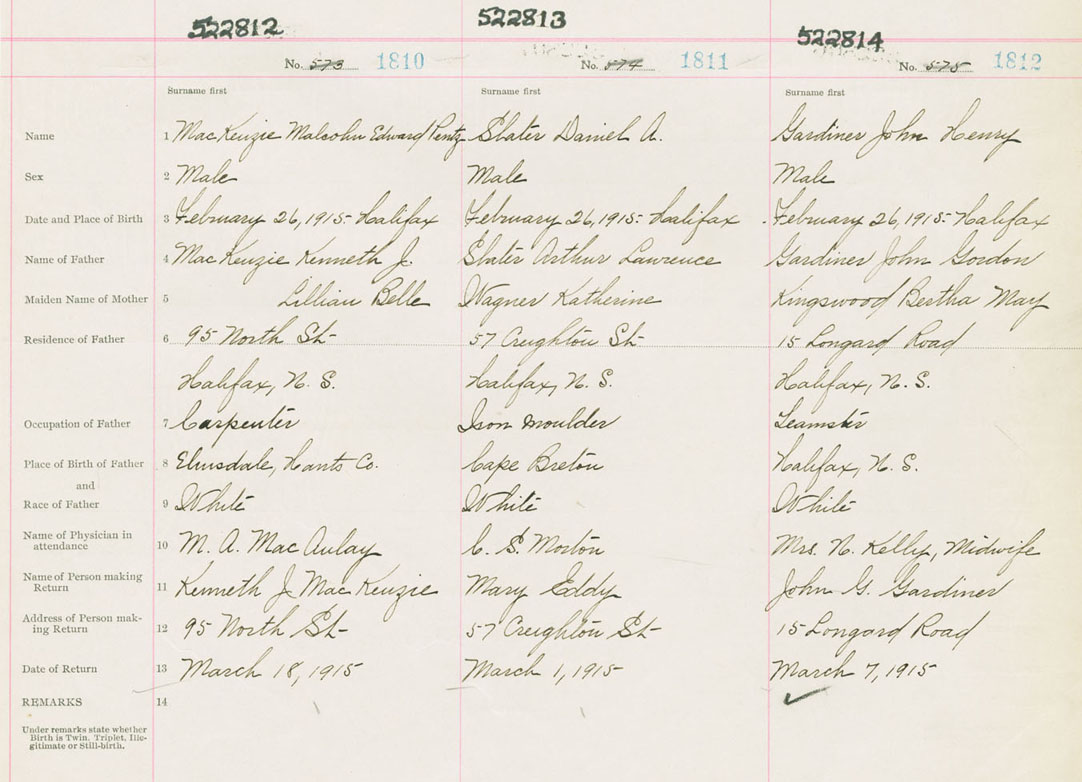 522812 522813 522814
No. 573 1810 No. 574 1811 No. 575 1812
Surname first Surname first Surname first
Name 1 MacKenzie Malcolm Edward Pentz Slater Daniel A. Gardiner John Henry
Sex 2 Male Male Male
Date and Place of Birth 3 February 26, 1915 - Halifax February 26, 1915 - Halifax February 26, 1915 - Halifax
Name of Father 4 MacKenzie Kenneth J. Slater Arthur Lawrence Gardiner John Gordon
Maiden Name of Mother 5 Lillian Belle Wagner Katherine Kingswood Bertha May
Residence of Father 6 95 North St- 57 Creighton St- 15 Longard Road
Halifax, N. S. Halifax, N. S. Halifax, N. S.
Occupation of Father 7 Carpenter Iron moulder Teamster
Place of Birth of Father 8 Elmsdale, Hants Co. Cape Breton Halifax, N. S.
and
Race of Father 9 White White White
Name of Physician in
attendance 10 M. A. MacAulay C. S. Morton Mrs. N. Kelly, Midwife
Name of Person making
Return 11 Kenneth J MacKenzie Mary Eddy John G. Gardiner
Address of Person mak-
ing Return 12 95 North St- 57 Creighton St- 15 Longard Road
Date of Return 13 March 18, 1915 March 1, 1915 March 7, 1915
REMARKS 14
Under remarks state whether
Birth is Twin. Triplet. Ille-
gitimate or Still-birth.